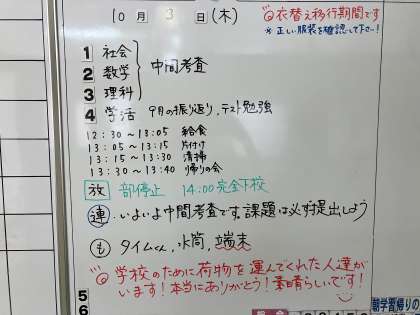 10月 3日(木)
◎衣替え移行期間です
*正しい服装を確認して下さい!
1 社会
2 数学 中間考査
3 理科
4 学活 9月の振り返り、テスト勉強
12:30~13:05 給食
13:05~13:15 片付け
13:15~13:30 清掃
13:30~13:40 帰りの会
放 部停止 14:00完全下校
連 いよいよ中間考査です。課題は必ず提出しよう
も タイムくん、水筒、端末
◎学校のために荷物を運んでくれた人達が
います!本当にありがとう!素晴らしいです!
5
6
朝学習帰りの